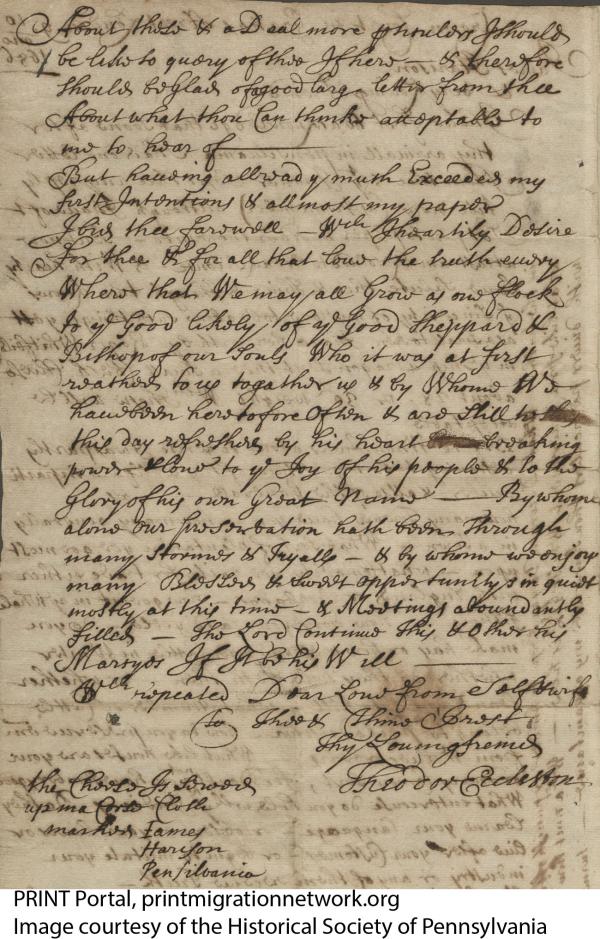 About these & a Deal more ptculers I should
be like to query of thee If here — & therefore
should be Glad of a good large letter from thee
About what thou Can thinke acceptable to
me to hear of
But haveing allready much Exceeded my
first Intentions & allmost my paper
I bid thee farewell — Wth heartily Desire
for thee & for all that love the truth every
Where that We may all Grow as one flock
to ye Good likely of ye Good Sheppard &
Bishop of our Souls Who it was at first
reached to us togather us & by Whome We
have been heretofore Often & are still to
this day refreshed by his heart breaking
power & love to ye Joy of his people & to the
Glory of his own Great Name — By whom
alone our preservation hath been Through
many Stormes & Tryalls — & by whome we enjoy
many Blessed & sweet oppertunitys in quiet
mostly at this time — & Meetings aboundantly
filled — The Lord Continue This & Other his
Marsyes If It be his Will
Wth repeated Dear Love from Self & wife
to Thee & Thine I rest
Thy Loving friend
Theodor Eccleston
the Cheese Is sewed
up in a Corse Cloth
marked James
Harison
Pensilvania
PRINT Portal, printmigrationnetwork.org
Image courtesy of the Historical Society of Pennsylvania